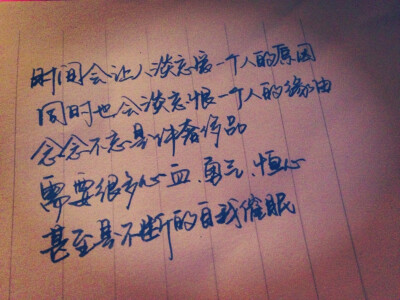 时间会让人淡忘爱一个人的原因
同时也会淡忘恨一个人的缘由
念念不忘是件奢侈品
需要很多心血、勇气、恒心
甚至是不断的自我催眠